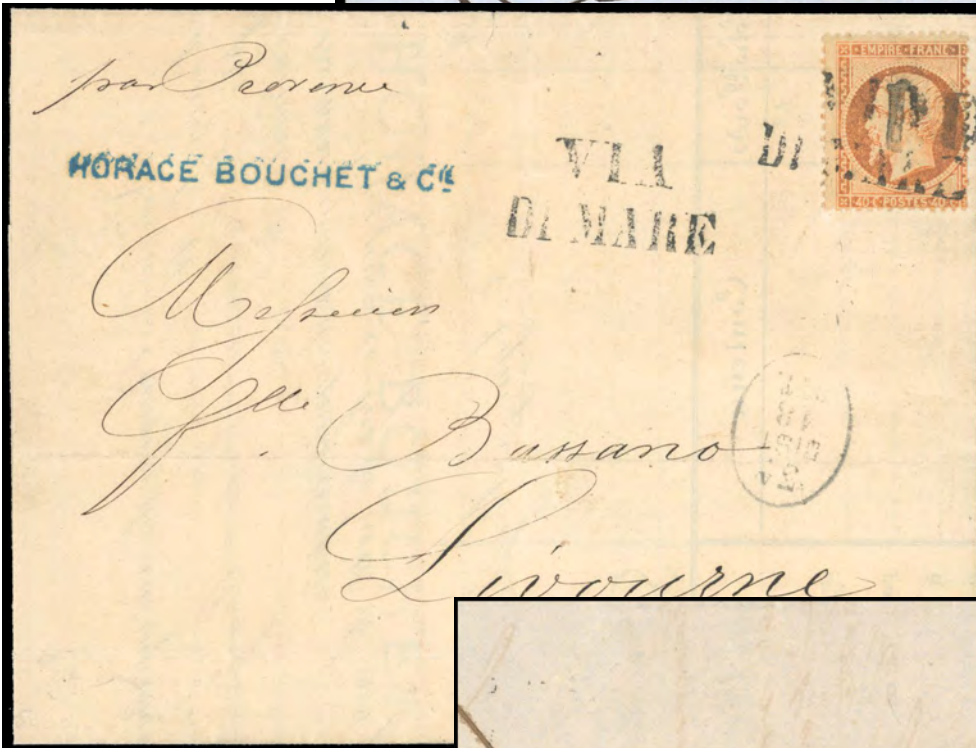 par Provence
HORACE BOUCHET & Cie
VIA
DI MARE
EMPIRE FRANC
DI MARE
40 C POSTES 40
Messieurs
Bassano
Livourne